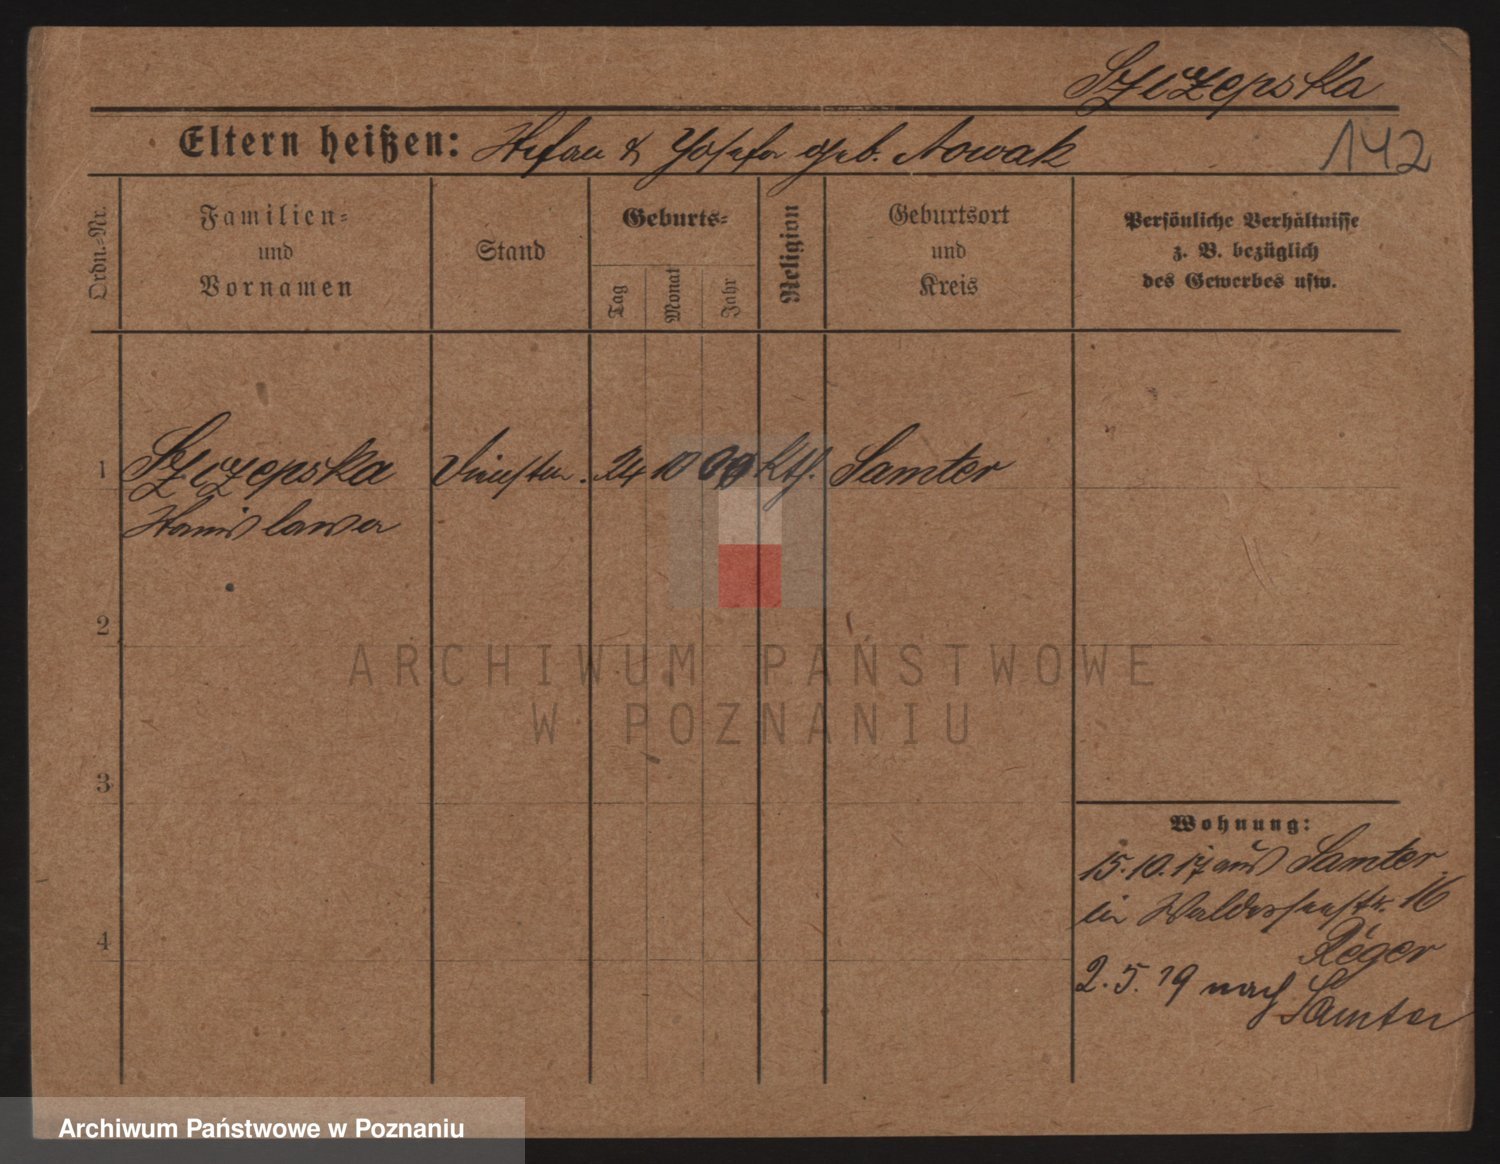 Szczepska
Eltern heißen: Stefan & Josefa geb. Nowak
142
Ordn.=Nr.
Familien=
und
Vornamen
Stand
Geburts=
Tag
Monat
Jahr
Religion
Geburtsort
und
Kreis
Persönliche Verhältnisse
z. B. bezüglich
des Gewerbes usw.
1 Szczepska 24 10 99 Kth. Samter
Stanislawa
2
3
4
ARCHIWUM PAŃSTWOWE
W POZNANIU
Wohnung:
15.10.17 aus Samter
in Walderseestr. 16
Réger
2.5.19 nach
Samter
Archiwum Państwowe w Poznaniu